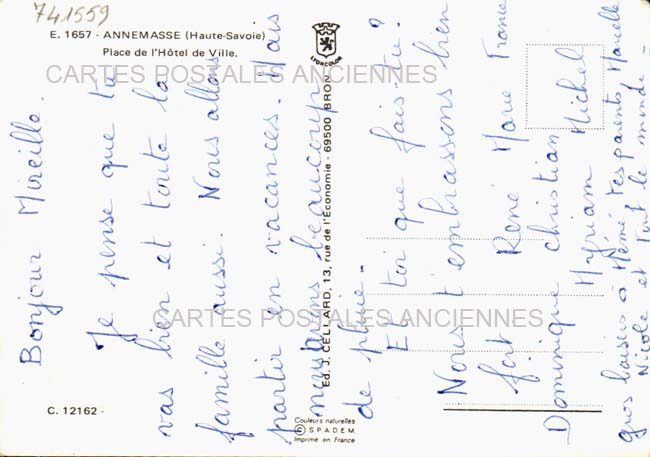 741559
E. 1657 - ANNEMASSE (Haute-Savoie)
Place de l'Hôtel de Ville.
LYONCOLOR
CARTES POSTALES ANCIENNES
Bonjour Mireille.
Je pense que tu
vas bien et toute la
famille aussi. Nous allons
partir en vacances. Mais
nous avons beaucoup
de pluie.
Et toi que fais-tu?
Nous t'embrassons bien
fort René Marie France
Dominique Christian Michel
Myriam
gros baisers à Mémé tes parents Marcelle
Nicole et tout le monde -
Ed. J. CELLARD, 13, rue de l'Économie - 69500 BRON
CARTES POSTALES ANCIENNES
C. 12162 -
Couleurs naturelles
© S.P.A.D.E.M.
Imprimé en France